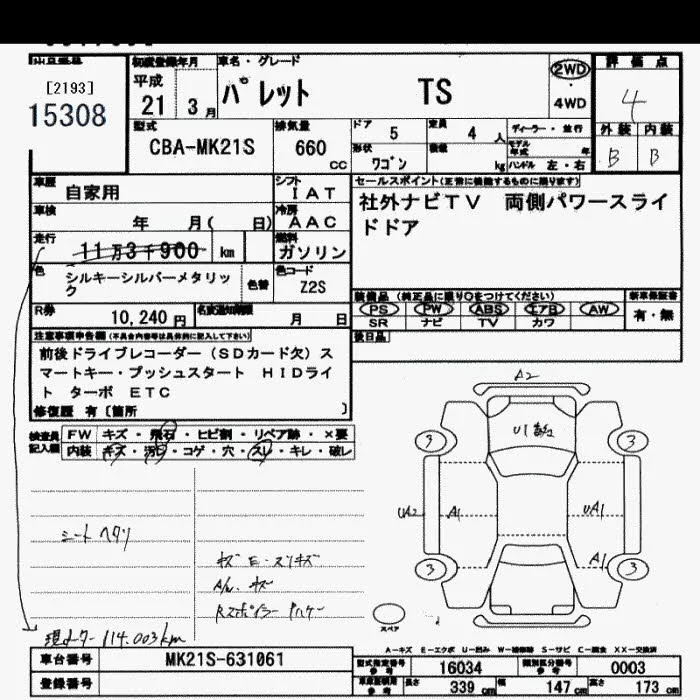 [2193]
15308
初度登録年月
平成
21 3月
車名・グレード
パレット TS
2WD
・
4WD
評価点
4
外装 内装
B B
型式
CBA-MK21S
排気量
660 cc
ドア 5
定員 4 人
形状 ワゴン
積載 kg
ディーラー・並行
モデル年式 年
ハンドル 左・右
車歴 自家用
シフト IAT
車検 年 月( 日)
冷房 AAC
走行 11万3千900 km
燃料 ガソリン
色 シルキーシルバーメタリック
色替
色コード Z2S
セールスポイント(正常に機能するものに限ります)
社外ナビTV 両側パワースライ
ドドア
R券 10,240円
名変通知期限 月 日
装備品 (純正品に限り○をつけてください)
PS PW ABS エアB AW
SR ナビ TV カワ
新車保証書
有・無
後日品
注意事項申告欄(不具合内容等は具体的に記入して下さい)
前後ドライブレコーダー(SDカード欠)ス
マートキー・プッシュスタート HIDライ
ト ターボ ETC
修復歴 有〔箇所 〕
検査員記入欄
FW キズ・飛石・ヒビ割・リペア跡・×要
内装 キズ・汚れ・コゲ・穴・スレ・キレ・破レ
A2
U1
3 3
UA2 A1 UA1
A1
3 3
スペア
シートヘタリ
キズ E・スリキズ
A/W キズ
Rスポイラー
現メーター 114.003km
A-キズ E-エクボ U-凹み W-補修跡 S-サビ C-腐食 XX-交換済
車台番号 MK21S-631061
登録番号
型式指定番号 参考 16034
類別区分番号 参考 0003
長さ 339 cm
幅 147 cm
高さ 173 cm